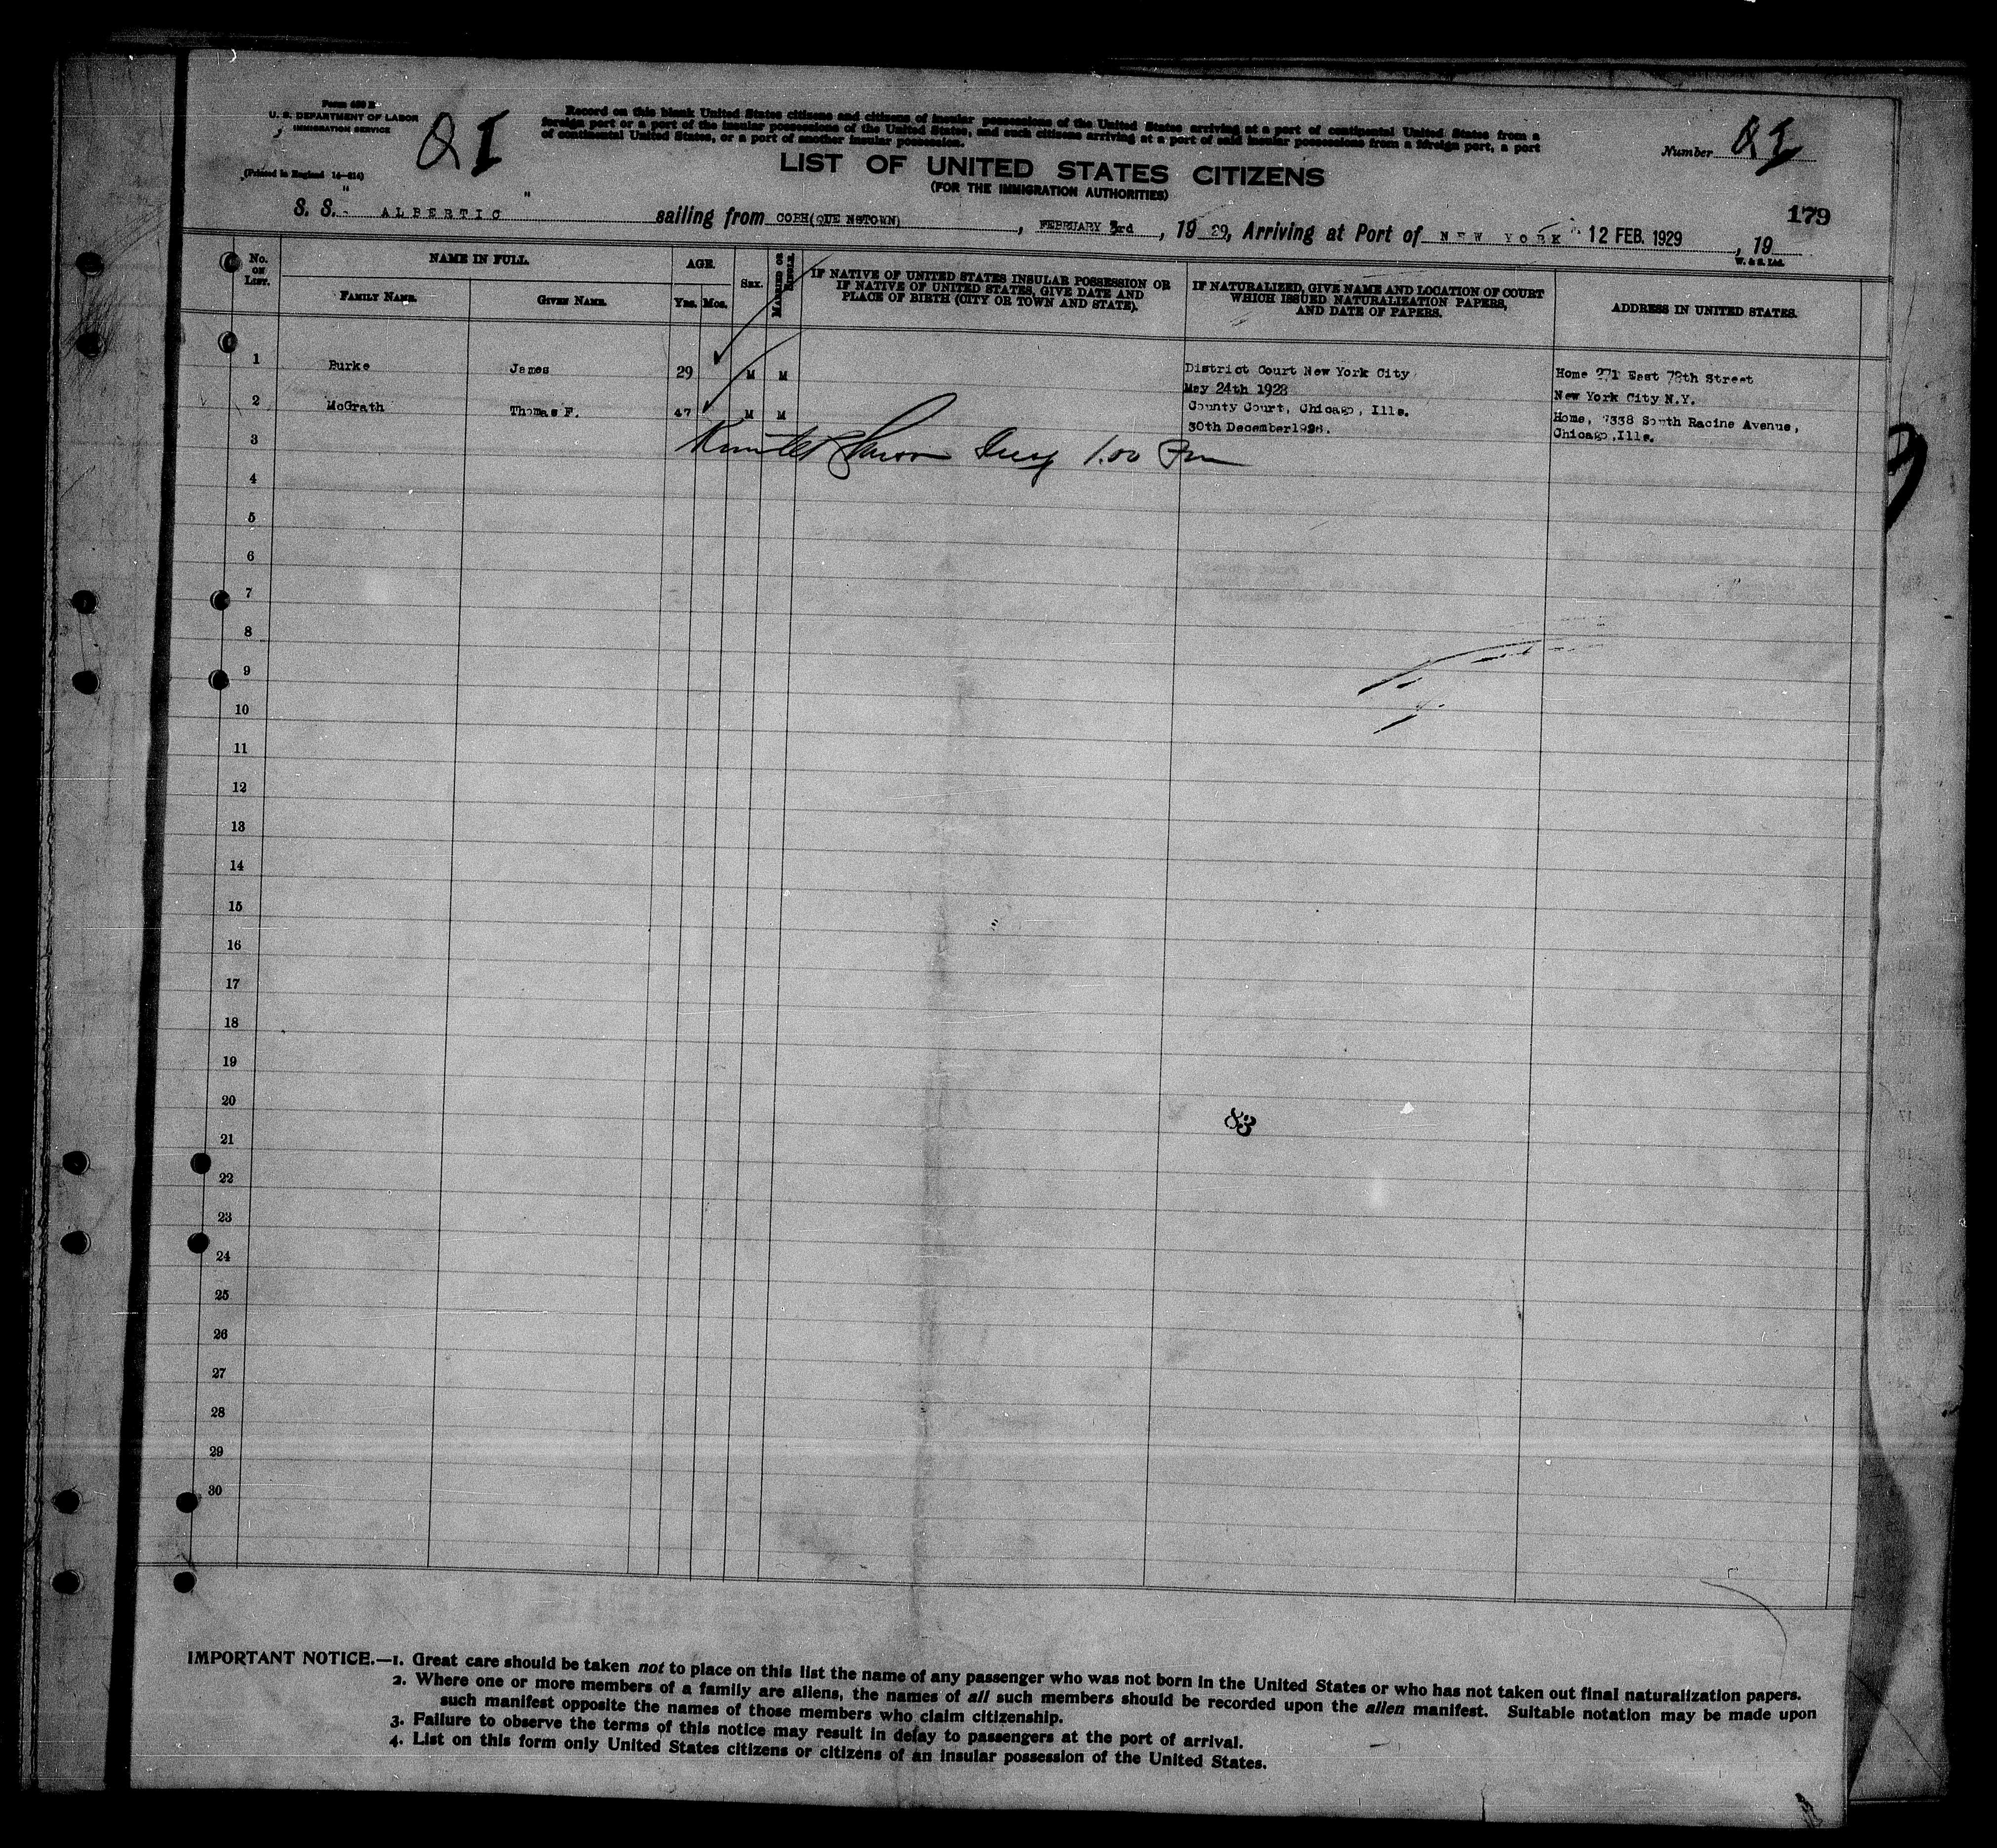 Form 630 B
U. S. DEPARTMENT OF LABOR
IMMIGRATION SERVICE
(Printed in England 14—814)
Q I
Record on this blank United States citizens and citizens of insular possessions of the United States arriving at a port of continental United States from a
foreign port or a port of the insular possessions of the United States, and such citizens arriving at a port of said insular possessions from a foreign port, a port
of continental United States, or a port of another insular possession.
LIST OF UNITED STATES CITIZENS
(FOR THE IMMIGRATION AUTHORITIES)
Number Q I
179
S. S. " ALBERTIC " sailing from COBH(QUE NSTOWN), FEBRUARY 3rd, 19 29, Arriving at Port of NEW YORK 12 FEB. 1929, 19
W. & S. Ltd.
No. ON LIST. NAME IN FULL. AGE. SEX. MARRIED OR SINGLE. IF NATIVE OF UNITED STATES INSULAR POSSESSION OR IF NATIVE OF UNITED STATES, GIVE DATE AND PLACE OF BIRTH (CITY OR TOWN AND STATE). IF NATURALIZED, GIVE NAME AND LOCATION OF COURT WHICH ISSUED NATURALIZATION PAPERS, AND DATE OF PAPERS. ADDRESS IN UNITED STATES.
FAMILY NAME. GIVEN NAME. Yrs. Mos.
1 Burke James 29 M M District Court New York City Home 271 East 78th Street
May 24th 1928 New York City N.Y.
2 McGrath Thomas F. 47 M M County Court, Chicago, Ills. Home, 7338 South Racine Avenue,
30th December1926. Chicago,Ills.
3 1.00 Pm
4
5
6
7
8
9
10
11
12
13
14
15
16
17
18
19
20
83
21
22
23
24
25
26
27
28
29
30
IMPORTANT NOTICE.—1. Great care should be taken not to place on this list the name of any passenger who was not born in the United States or who has not taken out final naturalization papers.
2. Where one or more members of a family are aliens, the names of all such members should be recorded upon the alien manifest. Suitable notation may be made upon
such manifest opposite the names of those members who claim citizenship.
3. Failure to observe the terms of this notice may result in delay to passengers at the port of arrival.
4. List on this form only United States citizens or citizens of an insular possession of the United States.